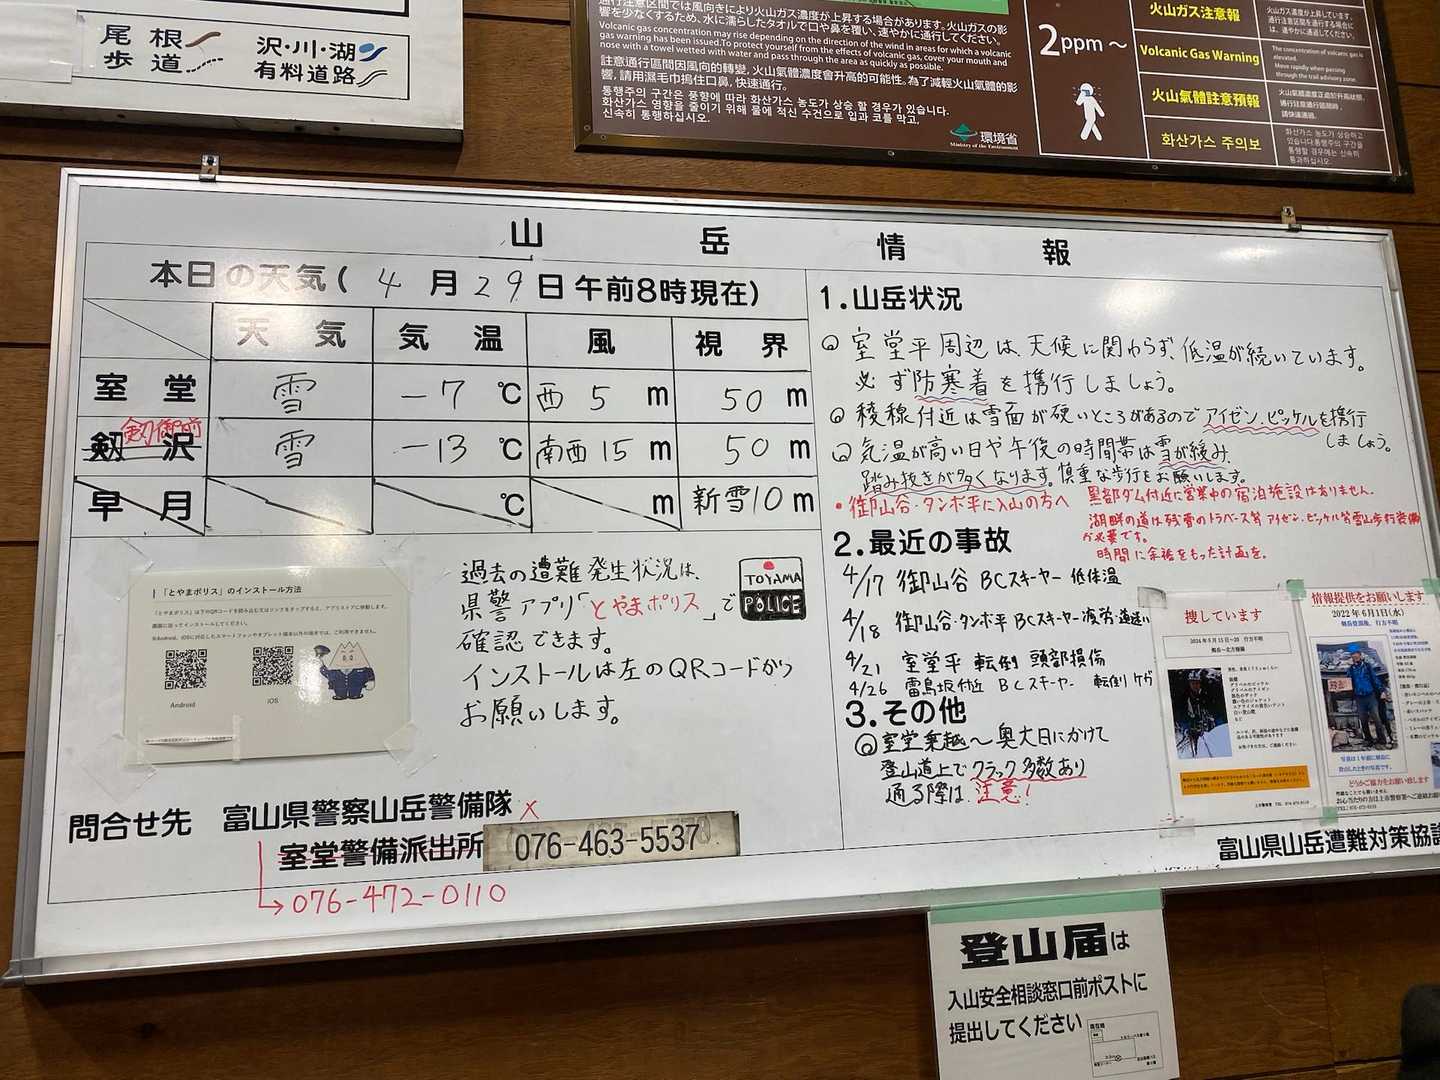 尾根
歩道
沢・川・湖
有料道路
通行注意区間では風向きにより火山ガス濃度が上昇する場合があります。火山ガスの影
響を少なくするため、水に濡らしたタオルで口や鼻を覆い、速やかに通行してください。
Volcanic gas concentration may rise depending on the direction of the wind in areas for which a volcanic
gas warning has been issued. To protect yourself from the effects of volcanic gas, cover your mouth and
nose with a towel wetted with water and pass through the area as quickly as possible.
註意通行區間因風向的轉變，火山氣體濃度會升高的可能性。為了減輕火山氣體的影
響，請用濕毛巾摀住口鼻，快速通行。
통행주의 구간은 풍향에 따라 화산가스 농도가 상승 할 경우가 있습니다.
화산가스 영향을 줄이기 위해 물에 적신 수건으로 입과 코를 막고,
신속히 통행하십시오.
環境省
Ministry of the Environment
2ppm～
火山ガス注意報
Volcanic Gas Warning
The concentration of volcanic gas is
elevated.
Move rapidly when passing
through the trail advisory zone.
火山氣體註意預報
화산가스 주의보
山岳情報
本日の天気(4月29日午前8時現在)
天気 気温 風 視界
室堂 雪 -7℃ 西5m 50m
剱御前
剱沢 雪 -13℃ 南西15m 50m
早月 ℃ m 新雪10m
「とやまポリス」のインストール方法
Android
iOS
過去の遭難発生状況は、
県警アプリ「とやまポリス」で
確認できます。
インストールは左のQRコードから
お願いします。
TOYAMA
POLICE
問合せ先 富山県警察山岳警備隊
室堂警備派出所 076-463-5537
→076-472-0110
1.山岳状況
◎室堂平周辺は、天候に関わらず、低温が続いています。
必ず防寒着を携行しましょう。
◎稜線付近は雪面が硬いところがあるのでアイゼン、ピッケルを携行
しましょう。
◎気温が高い日や午後の時間帯は雪が緩み、
踏み抜きが多くなります。慎重な歩行をお願いします。
・御山谷・タンボ平に入山の方へ
黒部ダム付近に営業中の宿泊施設はありません。
湖畔の道は残雪のトラバース等アイゼン・ピッケル等雪山歩行装備
が必要です。
時間に余裕をもった計画を。
2.最近の事故
4/17 御山谷 BCスキーヤー 低体温
4/18 御山谷・タンボ平 BCスキーヤー 疲労・道迷い
4/21 室堂平 転倒 頭部損傷
4/26 雷鳥坂付近 BCスキーヤー 転倒 ケガ
3.その他
◎室堂乗越～奥大日にかけて
登山道上でクラック多数あり
通る際は注意!
捜しています
情報提供をお願いします
2022年6月1日(水)
剱岳登頂後、行方不明
写真は1年前に剱岳に
登山したときの写真です。
どうかご協力をお願い致します
富山県山岳遭難対策協議
登山届は
入山安全相談窓口前ポストに
提出してください